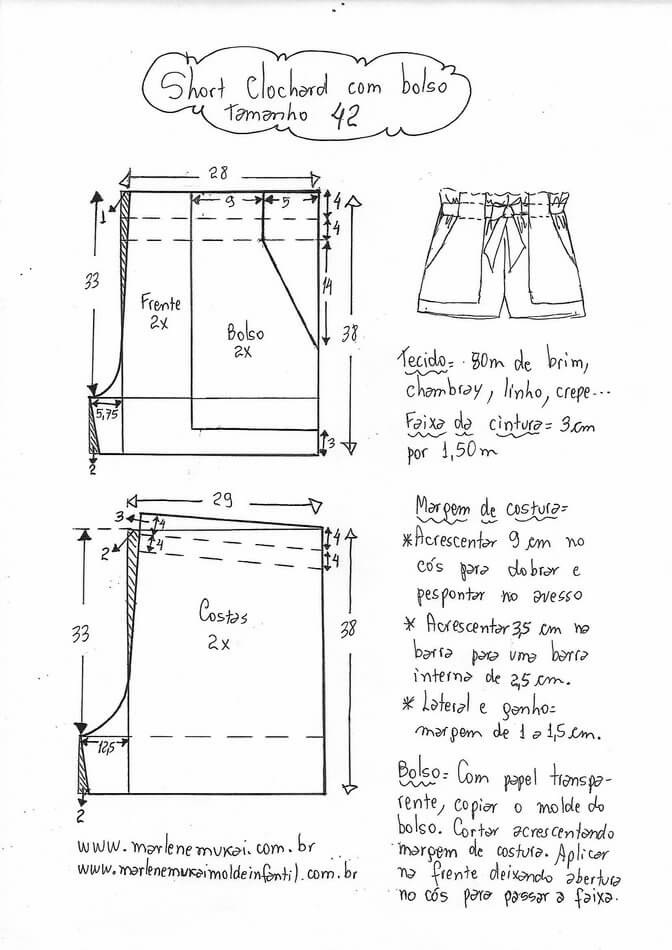 Short Clochard com bolso
tamanho 42
28
9
5
4
4
1
33
14
38
Frente
2x
Bolso
2x
5,75
3
2
Tecido= 80m de brim,
chambray, linho, crepe...
Faixa da cintura= 3cm
por 1,50m
29
3
4
4
2
4
4
33
38
Costas
2x
12,5
2
Margem de costura=
*Acrescentar 9 cm no
cós para dobrar e
pespontar no avesso
* Acrescentar 3,5 cm na
barra para uma barra
interna de 2,5 cm.
* Lateral e ganho=
margem de 1 a 1,5 cm.
Bolso= Com papel transpa-
rente, copiar o molde do
bolso. Cortar acrescentando
margem de costura. Aplicar
na frente deixando abertura
no cós para passar a faixa.
www.marlenemukai.com.br
www.marlenemukaimoldeinfantil.com.br